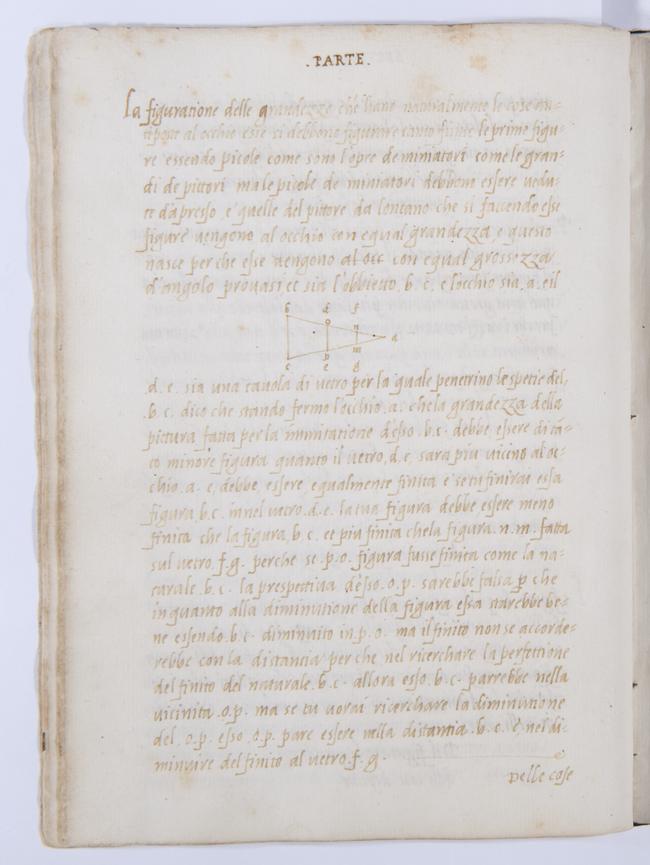 .PARTE.
La figuratione delle grandezze che hano naturalmente le cose an=
teposte al occhio essere si debbono figurare tanto finite le prime figu=
re essendo picole come sono l'opre de miniatori come le gran=
di de pittori ma le picole de miniatori debbone essere vedu=
te dapresso, e quelle del pittore da lontano che si faccendo esse
figure vengono al occhio con equal grandezza, e questo
nasce perche esse vengono al occ con equal grossezza
d'angolo provasi et sia l'obbietto .b. c. e l'occhio sia .a. e il
b d f
o n a
p m
c e g
.d. e. sia una tavola di vetro per la quale penetrino le spetie del,
.b c. dico che stando fermo l'occhio .a. che la grandezza della
pictura fatta per la immitatione desso .b.c. debbe, essere di tā=
to minore figura quanto il vetro .d.e. sara piu vicino al oc=
chio .a. e, debbe, essere, equalmente finita e se tu finirai essa
figura .b.c. in nel vetro .d.e. la tua figura debbe essere meno
finita che la figura .b c. et piu finita che la figura .n.m. fatta
sul vetro .f.g. perche se .p.o. figura fusse finita come la na=
turale .b.c. la prespettiva desso .o.p. sarebbe falsa p̱ che
in quanto alla diminutione della figura essa starebbe be=
ne essendo .b.c. diminuito in .p.o. ma il finito non se accorde=
rebbe con la distantia perche nel ricerchare la perfettione
del finito del naturale .b.c. allora esso .b.c. parrebbe nella
vicinita .o.p. ma se tu vorai ricerchare la diminutione
del .o.p. esso .o.p. pare essere nella distantia .b.c. e nel di=
minuire del finito al vetro .f. g.
Delle cose